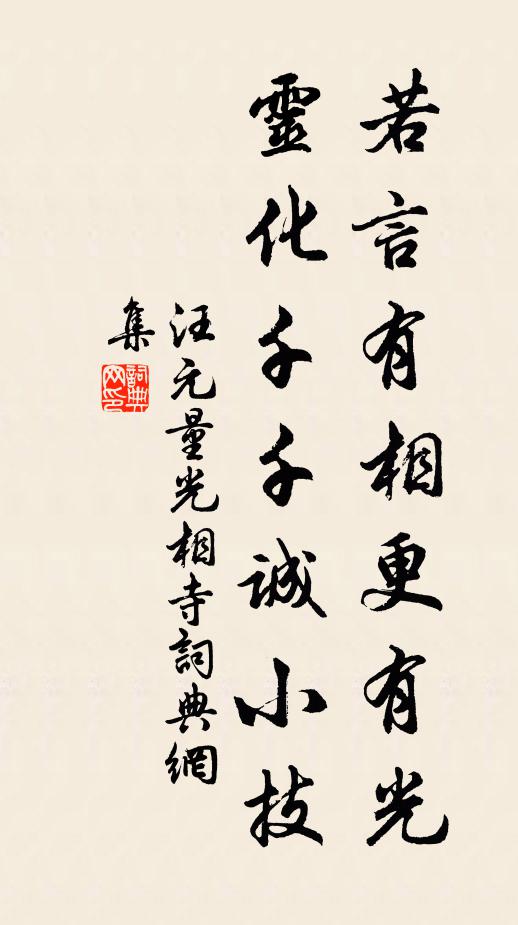 若言有相更有光
靈化千千誠小技
汪元量光相寺詞典網
集
詞典
网印